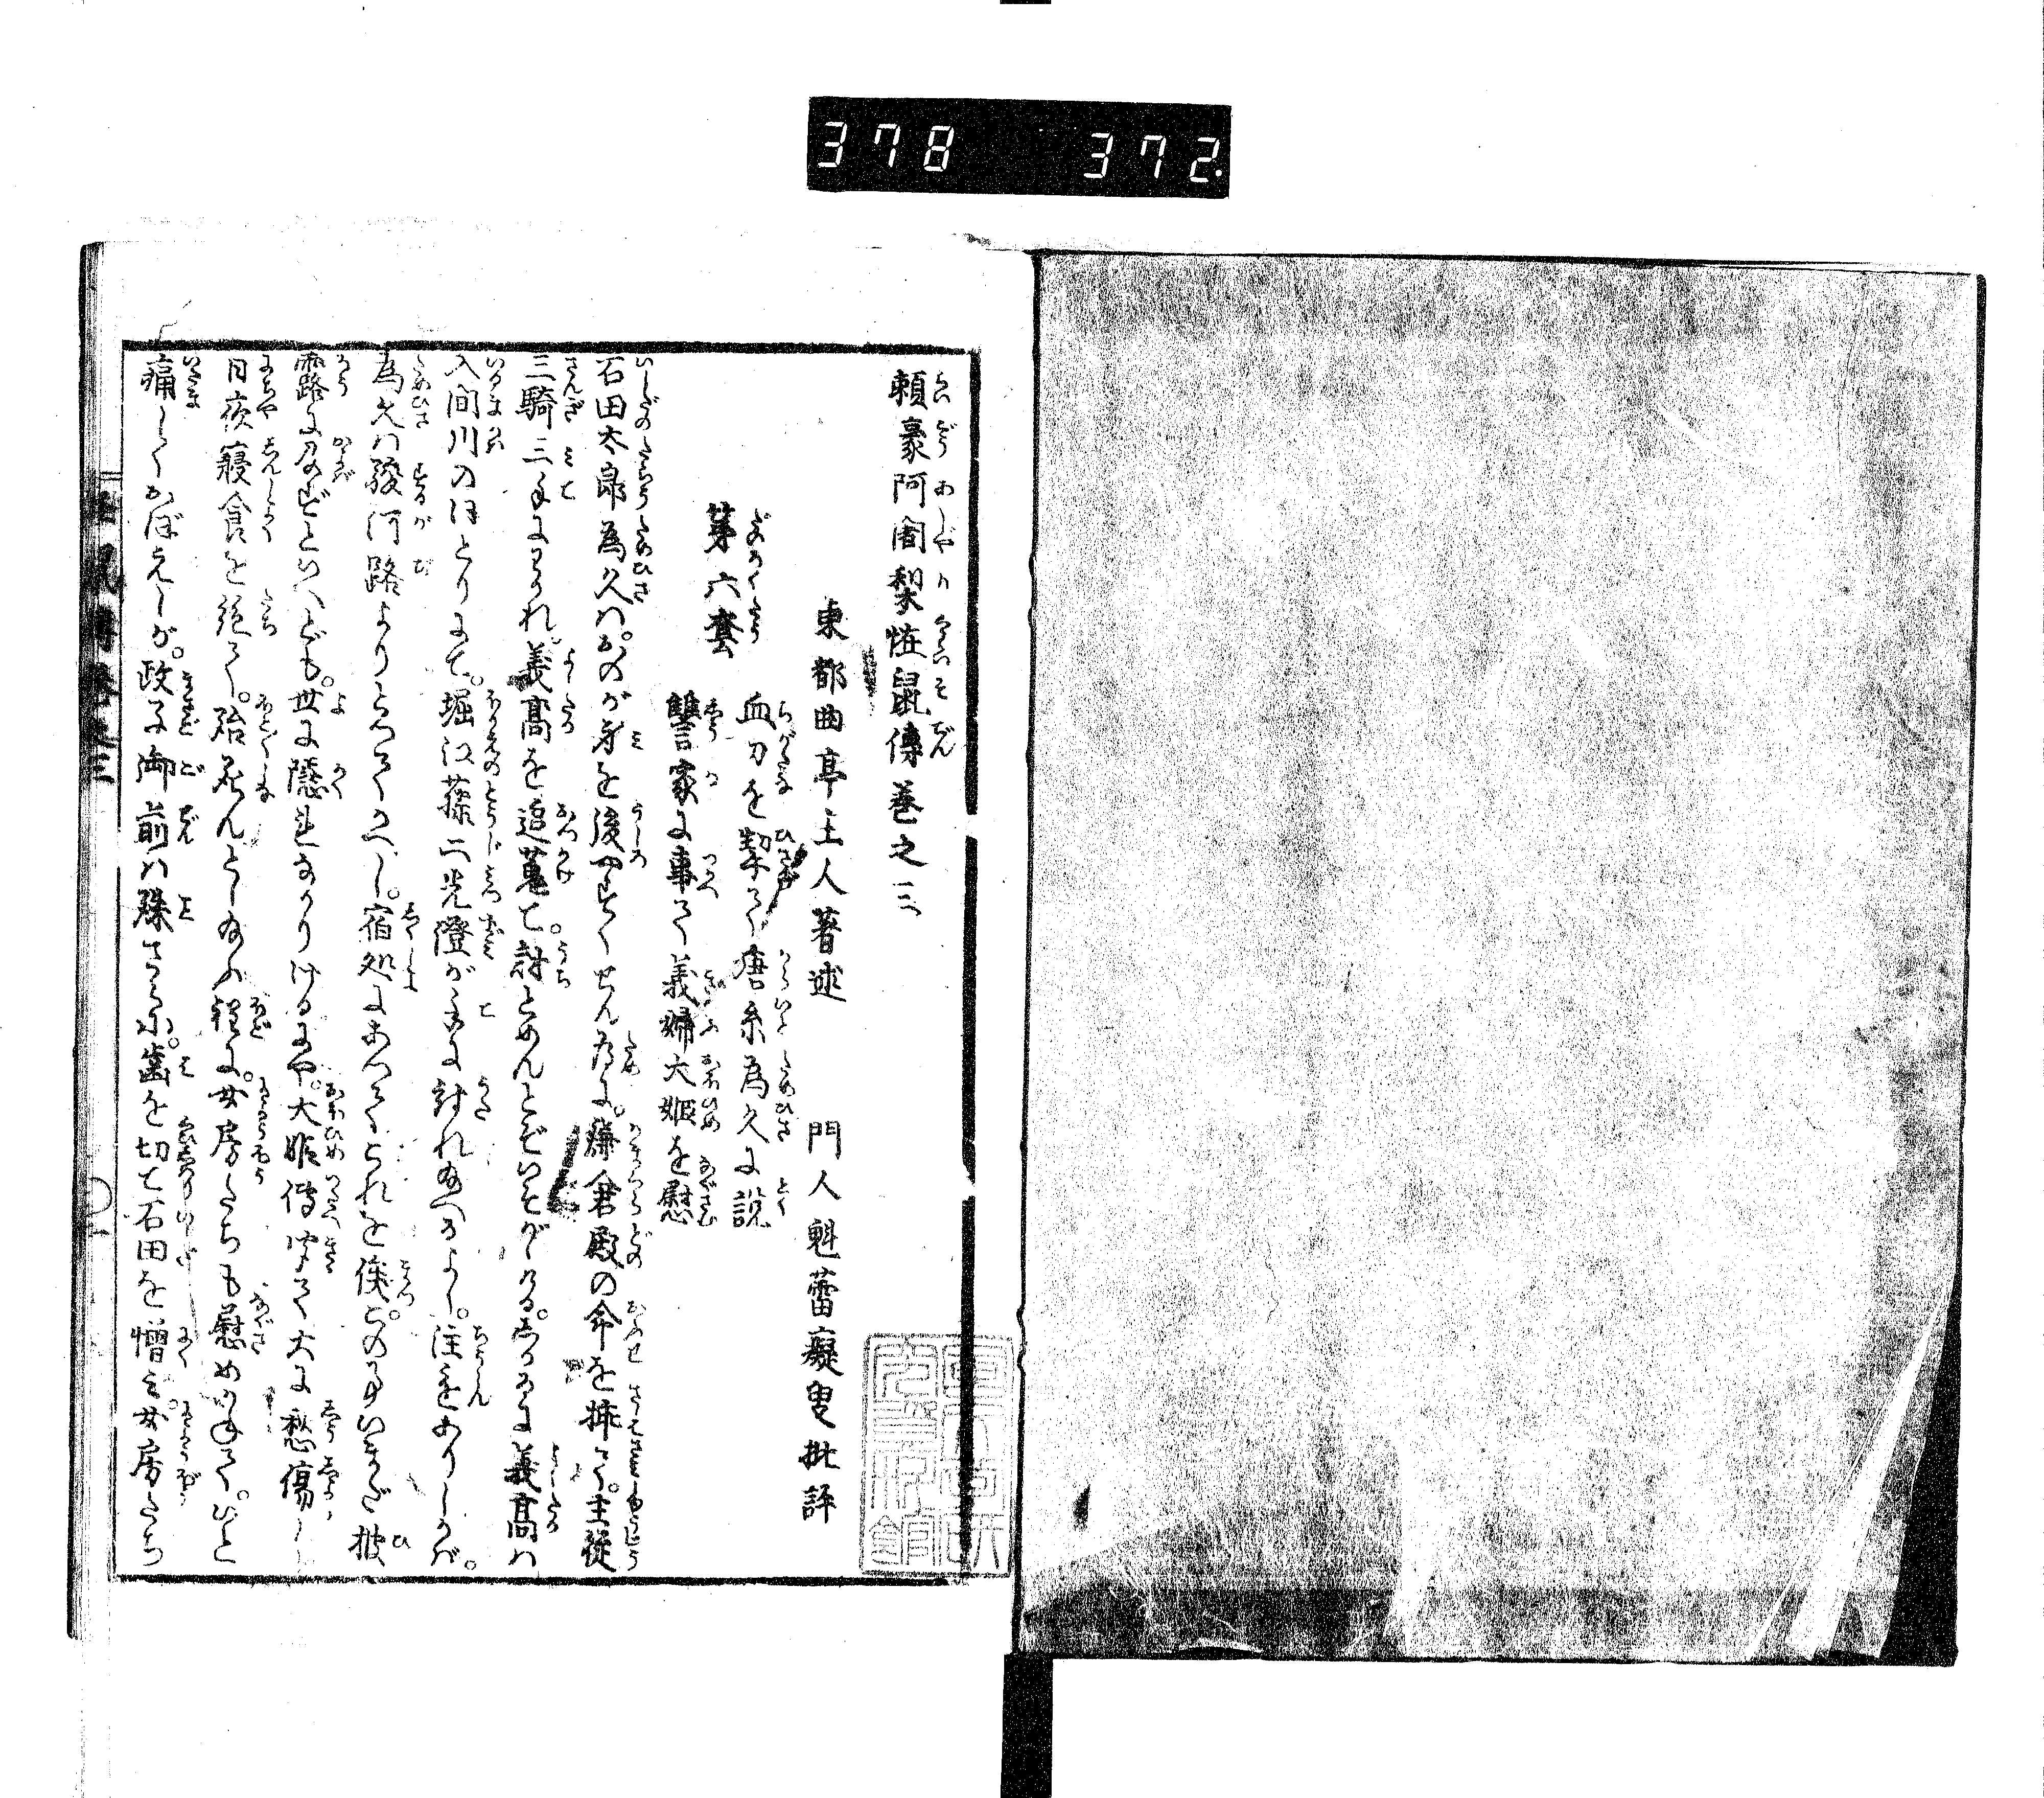 378 372.
頼豪阿闍梨恠鼠傳巻之三
東都曲亭主人著述 門人魁蕾癡叟批評
第六套
血刀を挈て唐糸為久に説
讐家に事て義婦大姫を慰
石田太郎為久ハ。おのが身を後やすくせん為に。鎌倉殿の命を捧て。主従
三騎三手にわかれ。義高を追蒐て。討とめんとぞいそがしける。さる程に義高ハ
入間川のほとりにて。堀江藤二光澄が手に討れ給へるよし。注進ありしかば。
為久ハ駿河路よりとつてかへし。宿処にあつてこれを俟。この事いまだ披
露に及ばずといへども。世に隠れなかりけるにや。大姫傳聞て大に愁傷し
日夜寝食を絶て。殆死んとし給ふ程に。女房たちも慰めかねて。ひと
痛しくおぼえしが。政子御前ハ殊さらに。歯を切て石田を憎み。女房たち